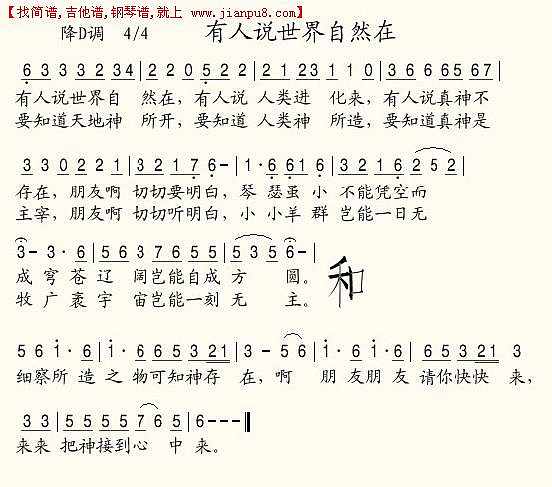 【找简谱,吉他谱,钢琴谱,就上 www.jianpu8.com】
降D调 4/4 有人说世界自然在
6 3 3 3 2 3 4 | 2 2 0 5 2 2 | 2 1 2 3 1 1 0 | 3 6 6 6 5 6 7 |
有人说世界自 然在，有人说 人类进 化来，有人说真神不
要知道天地神 所开，要知道 人类神 所造，要知道真神是
3 3 0 2 2 1 | 3 2 1 7 6 - | 1 · 6 6 1 6 | 3 2 1 6 2 5 2 |
存在，朋友啊 切切要明白，琴 瑟虽 小 不能凭空而
主宰，朋友啊 切切听明白，小 小羊 群 岂能一日无
3 - 3 · 6 | 5 6 3 7 6 5 5 | 5 3 5 6 - |
成 穹 苍 辽 阔岂能自成方 圆。
牧 广 袤 宇 宙岂能一刻 无 主。
和
5 6 1 · 6 | 1 · 6 5 3 2 1 | 3 - 5 6 | 1 · 6 6 5 3 2 1 3
细察所 造 之 物可知神存 在，啊 朋 友朋 友 请你快快 来，
3 3 | 5 5 5 5 7 6 5 | 6 - - - ‖
来来 把神接到心 中 来。